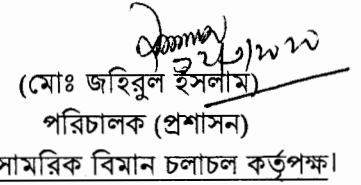 (মোঃ জহিরুল ইসলাম)
পরিচালক (প্রশাসন)
সামরিক বিমান চলাচল কর্তৃপক্ষ।